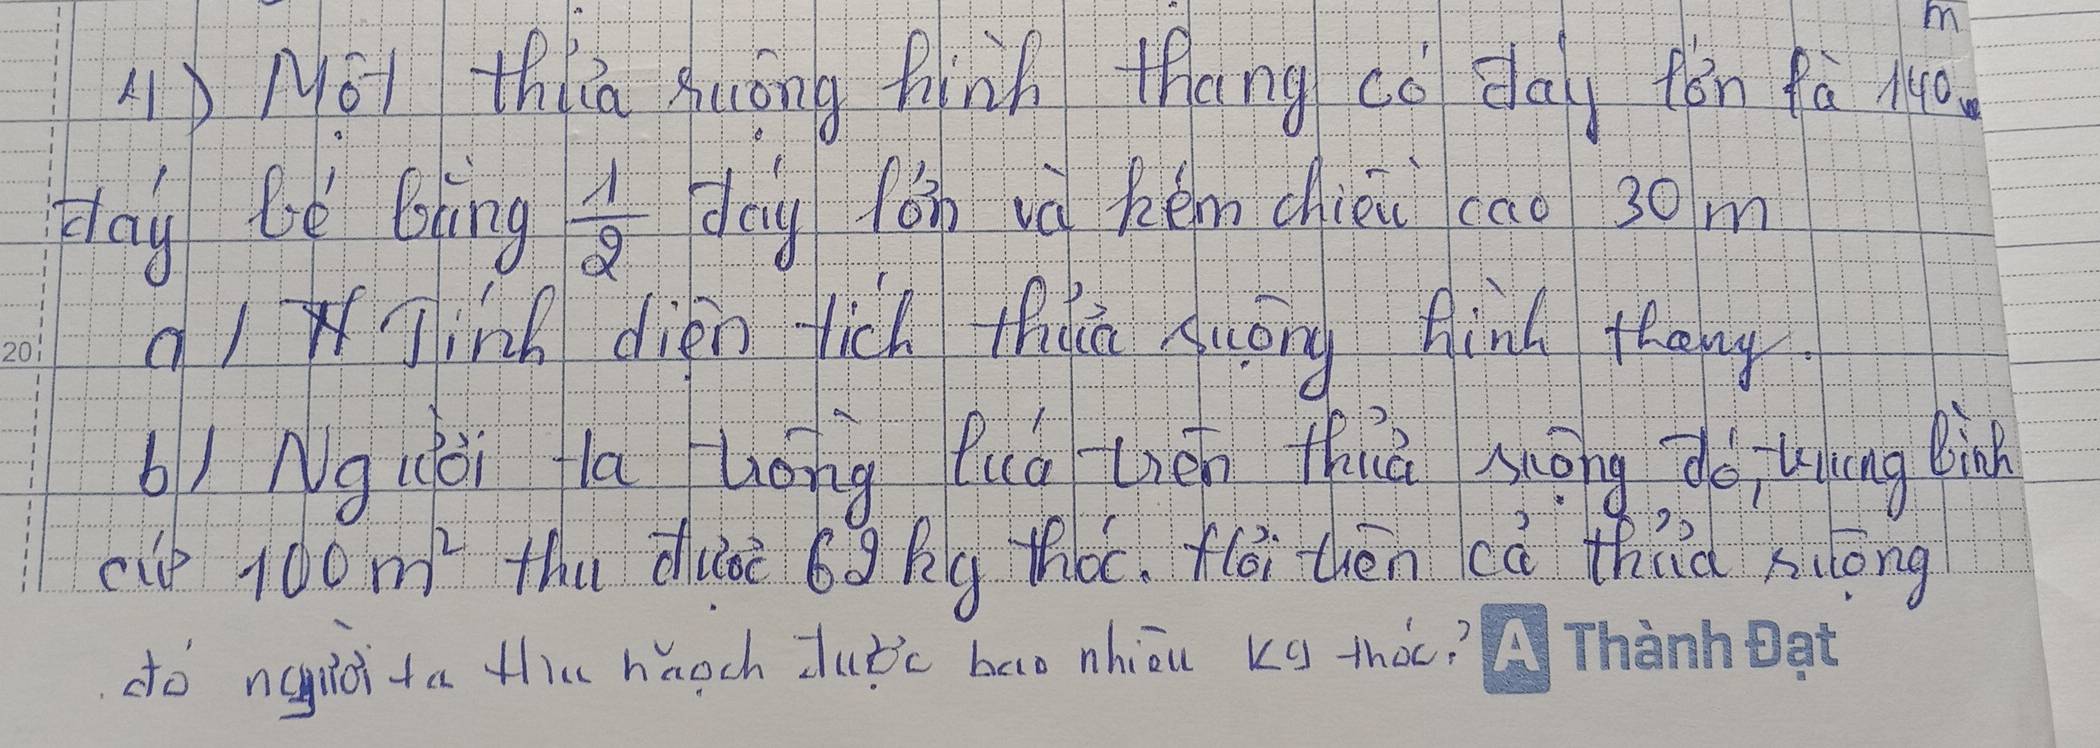 m
4) Một thửa ruộng hình thang có đáy lớn là 140
đáy bé bằng 1/2 đáy lớn và kém chiều cao 30 m
a/ Tính diện tích thửa ruộng hình thang.
20
b/ Người ta trồng luá trên thuả ruộng đó, trung bình
cứ 100 m² thu được 69 kg thóc. Hỏi trên cả thửa ruộng
đó người ta thu hoạch được bao nhiêu kg thóc?
A Thành Đạt